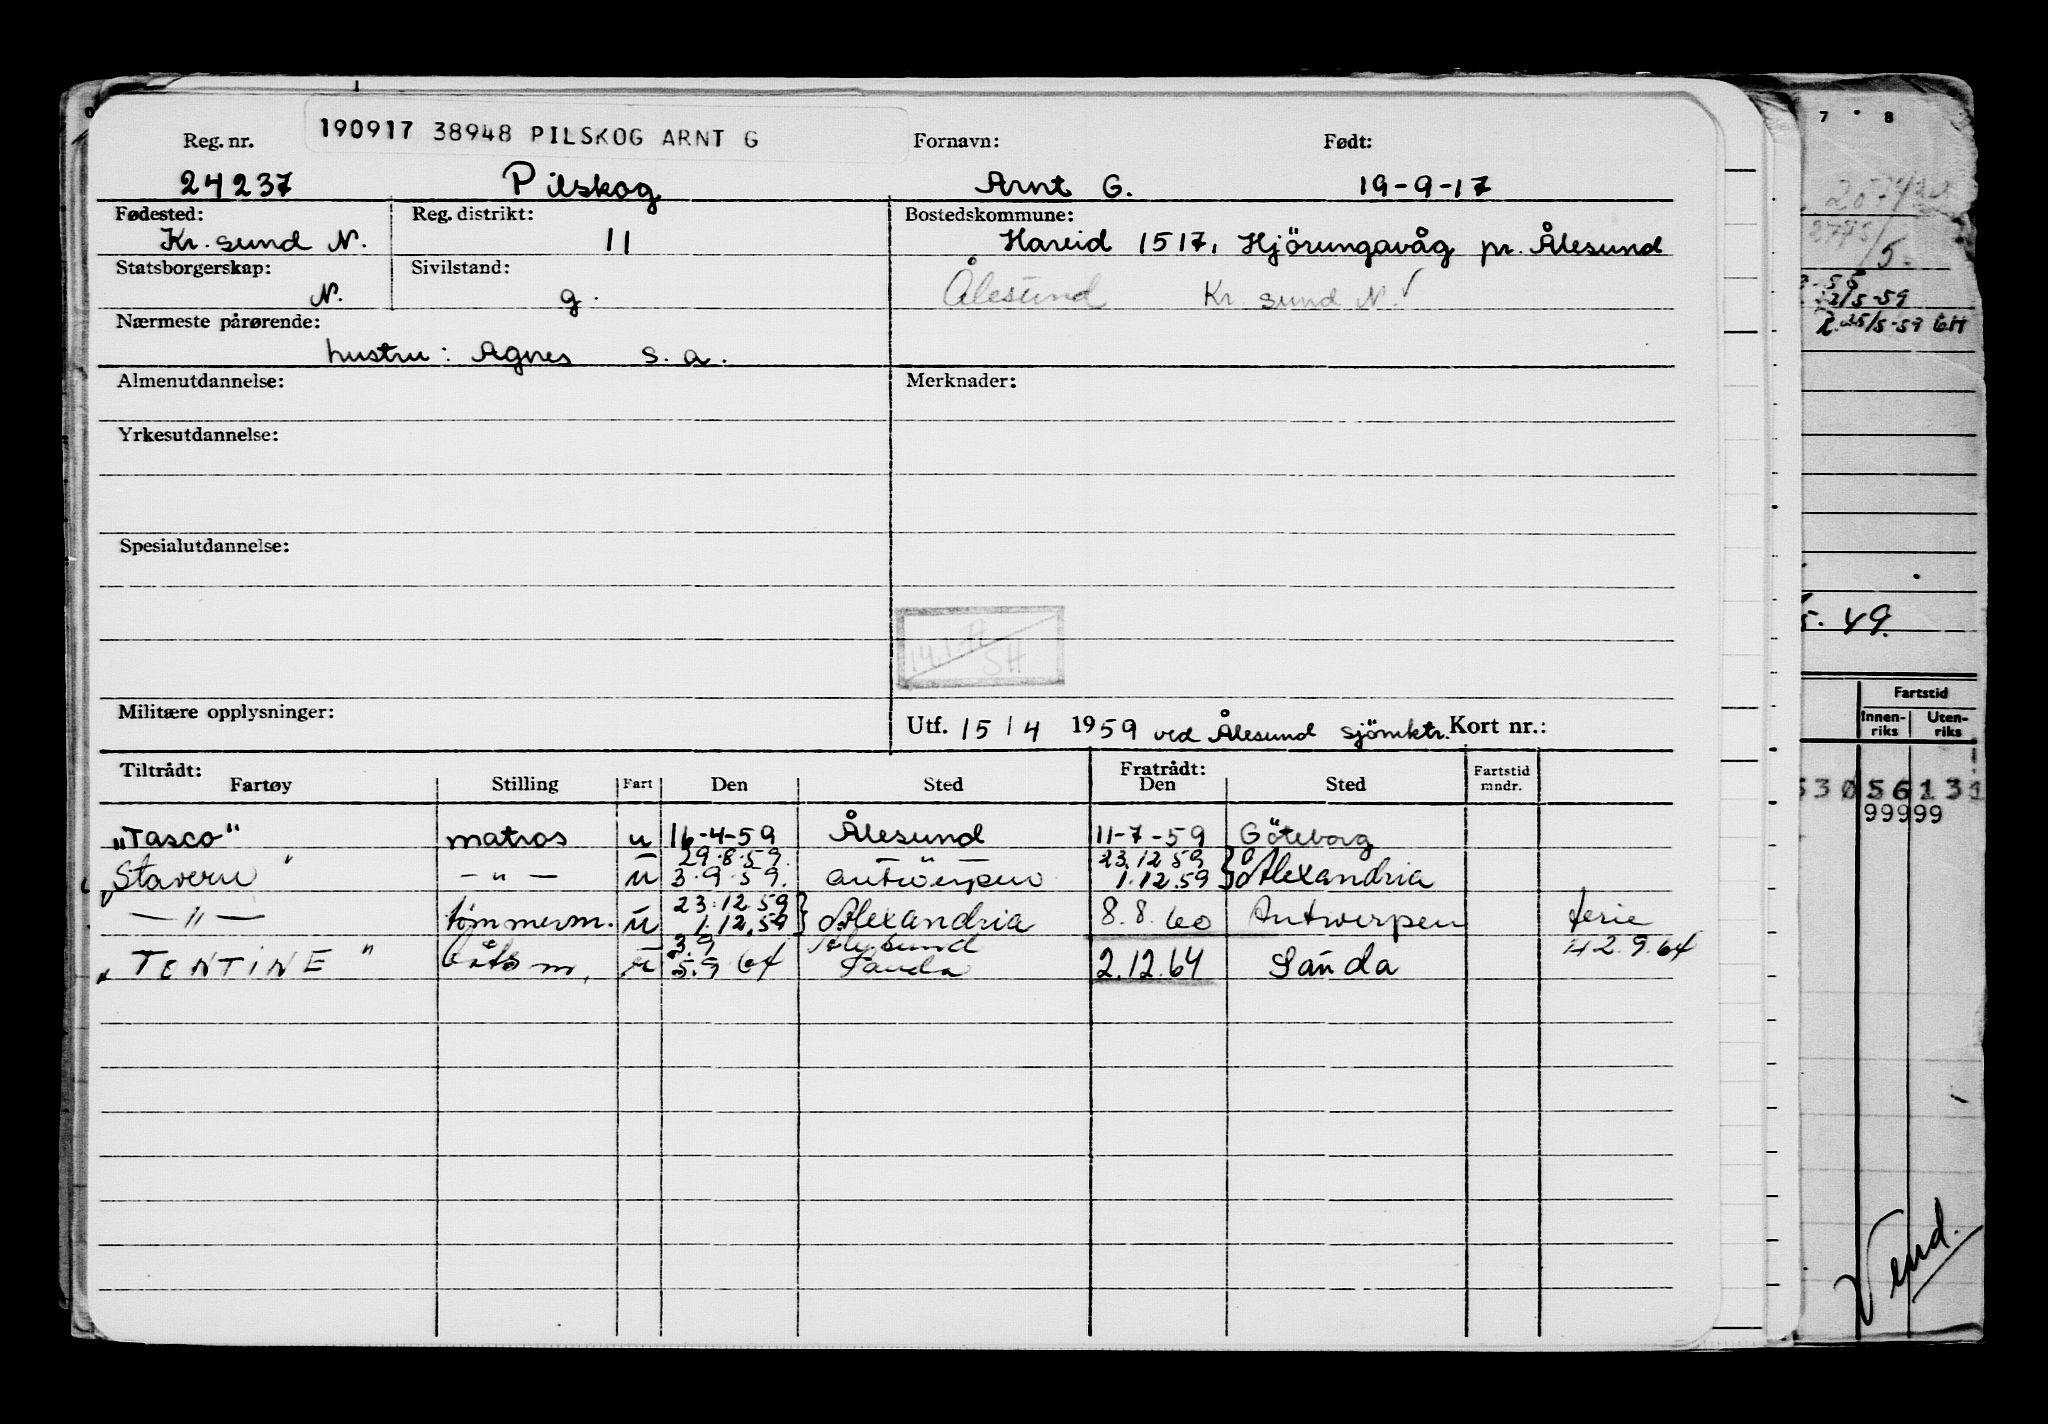 190917 38948 PILSKOG ARNT G
Reg. nr. Fornavn: Født:
24237 Pilskog Arnt G. 19-9-17
Fødested: Reg. distrikt: Bostedskommune:
Kr. sund N. 11 Hareid 1517, Hjörungavåg pr. Ålesund
Statsborgerskap: Sivilstand:
N. g. Ålesund Kr. sund N.
Nærmeste pårørende:
hustru: Agnes s. a.
Almenutdannelse: Merknader:
Yrkesutdannelse:
Spesialutdannelse:
SH
Militære opplysninger: Utf. 15/4 1959 ved Ålesund sjömktr. Kort nr.:
Tiltrådt: Fratrådt: Fartstid
Fartøy Stilling Fart Den Sted Den Sted mndr.
"Tasco" matros u 16-4-59 Ålesund 11-7-59 Göteborg
29.8.59. — " — 23.12.59
Stavern" — " — u 3.9.59. Antwerpen 1.12.59 } Alexandria
23.12.59
— " — tömmerm. u 1.12.59 } Alexandria 8.8.60 Antwerpen ferie
3.9 Ålesund 2.9.64
"TENTINE" båtsm. u 5.9.64 Sauda 2.12.64 Sauda
7 8
5.
22/5-59
R. 25/5-59 GH
49.
Fartstid
Innen-riks Uten-riks
53056131
99999
Vend.